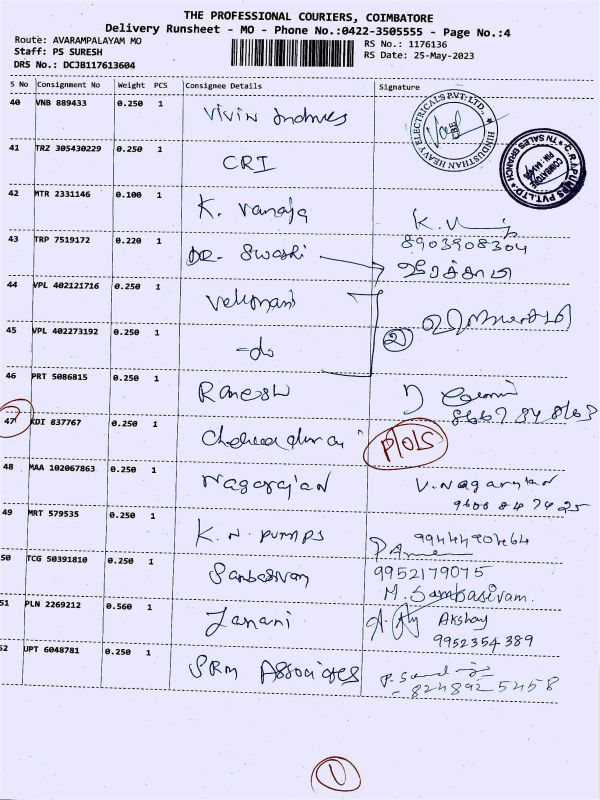 THE PROFESSIONAL COURIERS, COIMBATORE
Delivery Runsheet - MO - Phone No.:0422-3505555 - Page No.:4
Route: AVARAMPALAYAM MO
Staff: PS SURESH
DRS No.: DCJB117613604
RS No.: 1176136
RS Date: 25-May-2023
S No Consignment No Weight PCS Consignee Details Signature
40 VNB 889433 0.250 1
HINDUSTHAN HEAVY ELECTRICALS PVT. LTD.,
CBE
C.R.I. PUMPS PVT.LTD.
TN SALES BRANCH
COIMBATORE
41 TRZ 305430229 0.250 1 CRI
42 MTR 2331146 0.100 1 K. Vanaja K.
8903908304
43 TRP 7519172 0.220 1 DR. Swathi
44 VPL 402121716 0.250 1 Velmani
45 VPL 402273192 0.250 1 -do 2
46 PRT 5086815 0.250 1 Ramesh
47 KDI 837767 0.250 1 P/OLS
48 MAA 102067863 0.250 1 Nagarajan V. Nagarajan
9600847425
49 MRT 579535 0.250 1 K.N. PUMPS 9944490464
50 TCG 50391810 0.250 1 Sambasivam 9952179075
M. Sambasivam.
51 PLN 2269212 0.560 1 Janani Akshay
9952354389
52 UPT 6048781 0.250 1 SRM Associates
8248925458
1